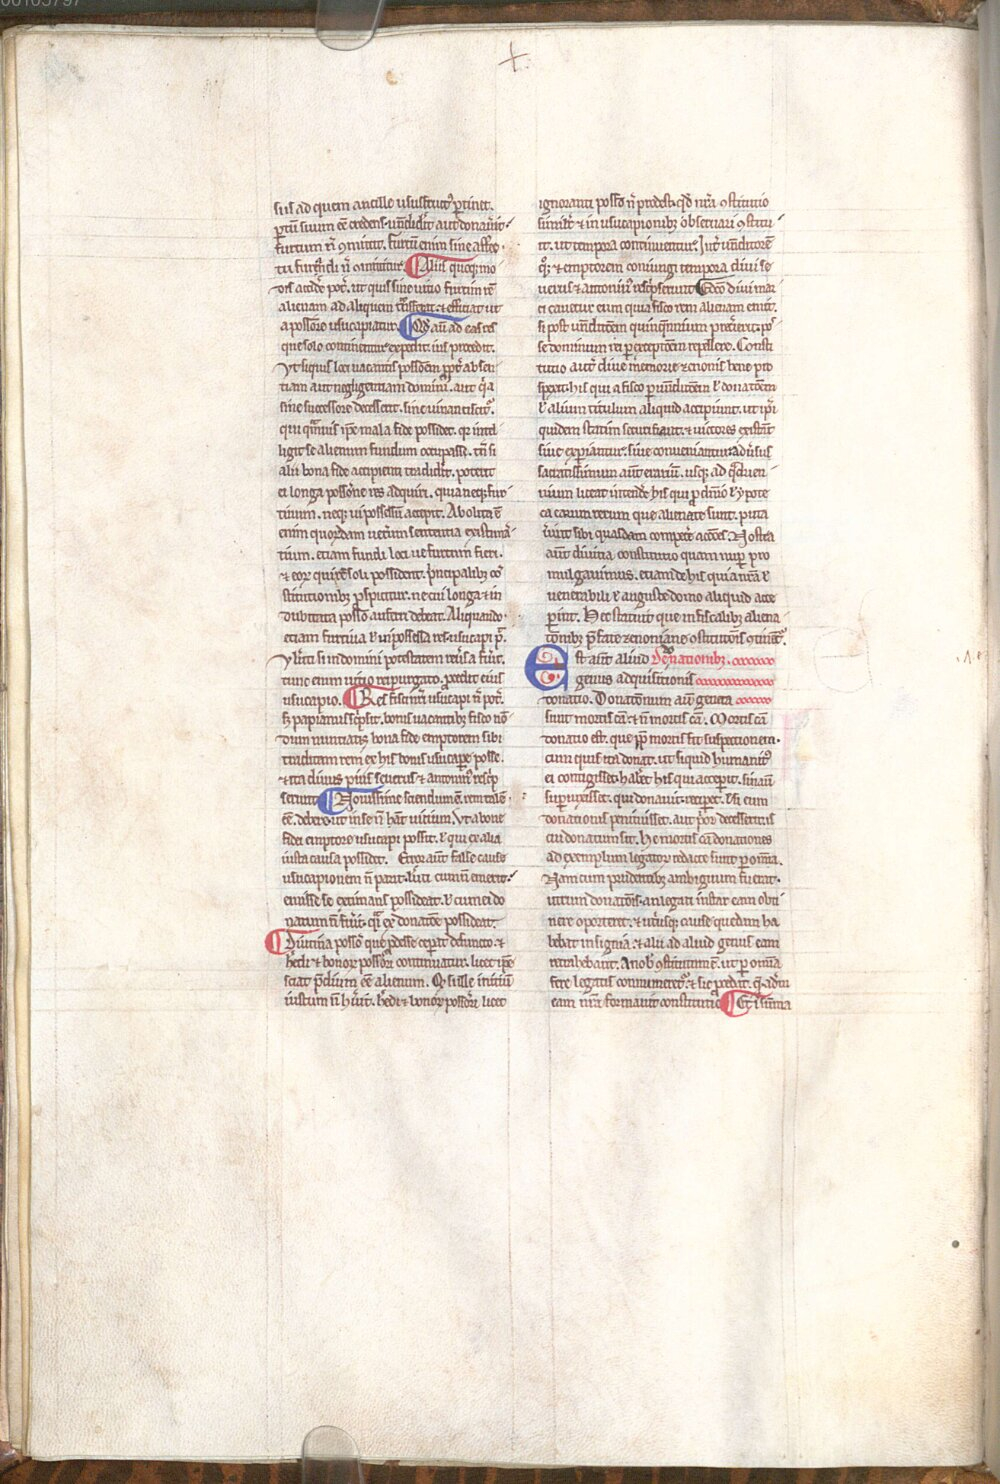 sus ad quem ancille ususfruct᷒ ꝑtinet.
ꝑtū suum eē credens uēndidit aut donau͛it
furtum ñ ꝯmittit. furtū enim sine affec
tu furandi ñ ꝯmittit᷒. Aliis quoqꝫ mo
dis accid͛e pot̄. ut quis sine uitio furti rē
alienam ad aliquem tͣnsferat: ⁊ efficiat ut
a possessore usucapiatur. Qđ aū ad eas res
que solo continentur expedit. ius procedit.
Ut si quis loci uacantis possessionem ppt̄ absen
tiam aut negligentiam domini. aut qͥa
sine successore decesserit. sine ui nanciscat᷒.
qui qͣmuis ip̄e mala fide possidet. qꝛ intel
ligit se alienum fundum occupasse. tn̄ si
alii bona fide accipienti tradidit. poterit
ei longa possessione res adquiri. quia neqꝫ fur
tiuum. neqꝫ ui possessū accepit. Abolita ē
enim quorundam ueterum sententia existima
tium. etiam fundi loci ue furtum fieri.
⁊ eoꝝ qui rē soli possident. p̄ncipalibꝫ cō
stitutionibꝫ ꝓspicitur. ne cui longa ⁊ in
dubitata possessio auferri debeat. Aliquando
etiam furtiua ł ui possessa res usucapi p̄t.
Uł̄uti si in domini potestatem reuersa fu͛it.
tunc enim uitio rei purgato. ꝓcedit eius
usucapio. Res fisci nr̄i usucapi ñ pot̄.
s̄ papianus sc͛psit. bonis uacantibꝫ fisco nō
dum nuntiatis bona fide emptorem sibi
traditam rem ex his bonis usucape͛ posse.
⁊ ita diuus pius ⁊ seuerus ⁊ antonin᷒ resc͛p
serunt. Nouissime sciendum ē. rem talē
eē debere ut in se ñ hāt uitium. Ut a bone
fidei emptore usucapi possit. ł qui ex alia
iusta causa possidet. Error aūt false cause
usucapionem ñ parit. uł̄uti cum ñ emerit
emisse se existimans possideat. ł cum ei do
natum ñ fu͛it. qͣsi ex donatōe possideat.
Diutina possessio que ꝓdesse ceperat defuncto. ⁊
he͛di ⁊ bonoꝝ possessori continuatur. licet ip̄e
sciat p̄dium eē alienum. Qđ si ille initiū
iustum ñ hūit. he͛di ⁊ bonoꝝ possessori licet
ignoranti possessio ñ prodest. qđ nr̄a ꝯstitutio
similit͛ ⁊ in usucapionibꝫ obseruari ꝯstitu
it. ut tempora continuentur. Int͛ uēnditorē
qꝫ ⁊ emptorem coniungi tempora diui se
uerus ⁊ antonin᷒ resc͛pserunt. Edcō diui mar
ci cauetur eum qui a fisco rem alienam emit.
si post uēnditōem quinqͤnnium pret͛ierit. pos
se dominum rei ꝑ exceptōem repellere. Consti
tutio aut̄ diue memorie zenonis bene pro
spexit. his qui a fisco ꝑ uēnditōem ł donatōem
ł alium titulum aliquid accipiunt. ut ipsi
quidem statim securi fiant. ⁊ uictores existāt
siue experiantur. siue conueniantur. ad͛usus
sacratissimum aūt erarium. usqꝫ ad qͣdrien
nium liceat intende͛ his qui ꝓ dn̄io ł ypote
ca earum rerum que alienate sunt. puta
u͛int sibi quasdam compete͛ actōes. Nostra
aūt diuina constitutio quam nuper pro
mulgauimus. etiam de his qui a nr̄a ł
uenerabili ł auguste domo aliquid acce
perint. Hec statuit que in fiscalibꝫ aliena
tōnibꝫ p̄fate zenoniane ꝯstitutōis ꝯtinēt᷒.
Est aūt aliud De donationibꝫ.
genus adquisitionis
donatio. Donatōnum aūt genera
sunt mortis cā. ⁊ ñ mortis cā. Mortis cā
donatio est. que ꝓpt͛ mortis fit suspectionem.
cum quis ita donat. ut si quid humanit᷒
ei contigisset. habe͛t his qui accepit. sin aūt
suꝑuixisset. qui donauit. recipe͛t. ł si eum
donationis penituisset. aut prior decesserit is
cui donatum sit. He mortis cā donationes
ad exemplum legatoꝝ redacte sunt ꝑ omnia.
Nam cum prudentibꝫ ambiguum fuerat.
utrum donatōis. an legati instar eam obti
nere oporteret. ⁊ ut͛usqꝫ cause quedam ha
bebat insignia. ⁊ alii ad aliud genus eam
retrahebant. A nob̄ ꝯstitutum ē. ut ꝑ omnia
fere legatis connumeret᷒. ⁊ sic ꝓcedat. qͤadm̄
eam nr̄a formauit constitutio. Et ī sūma